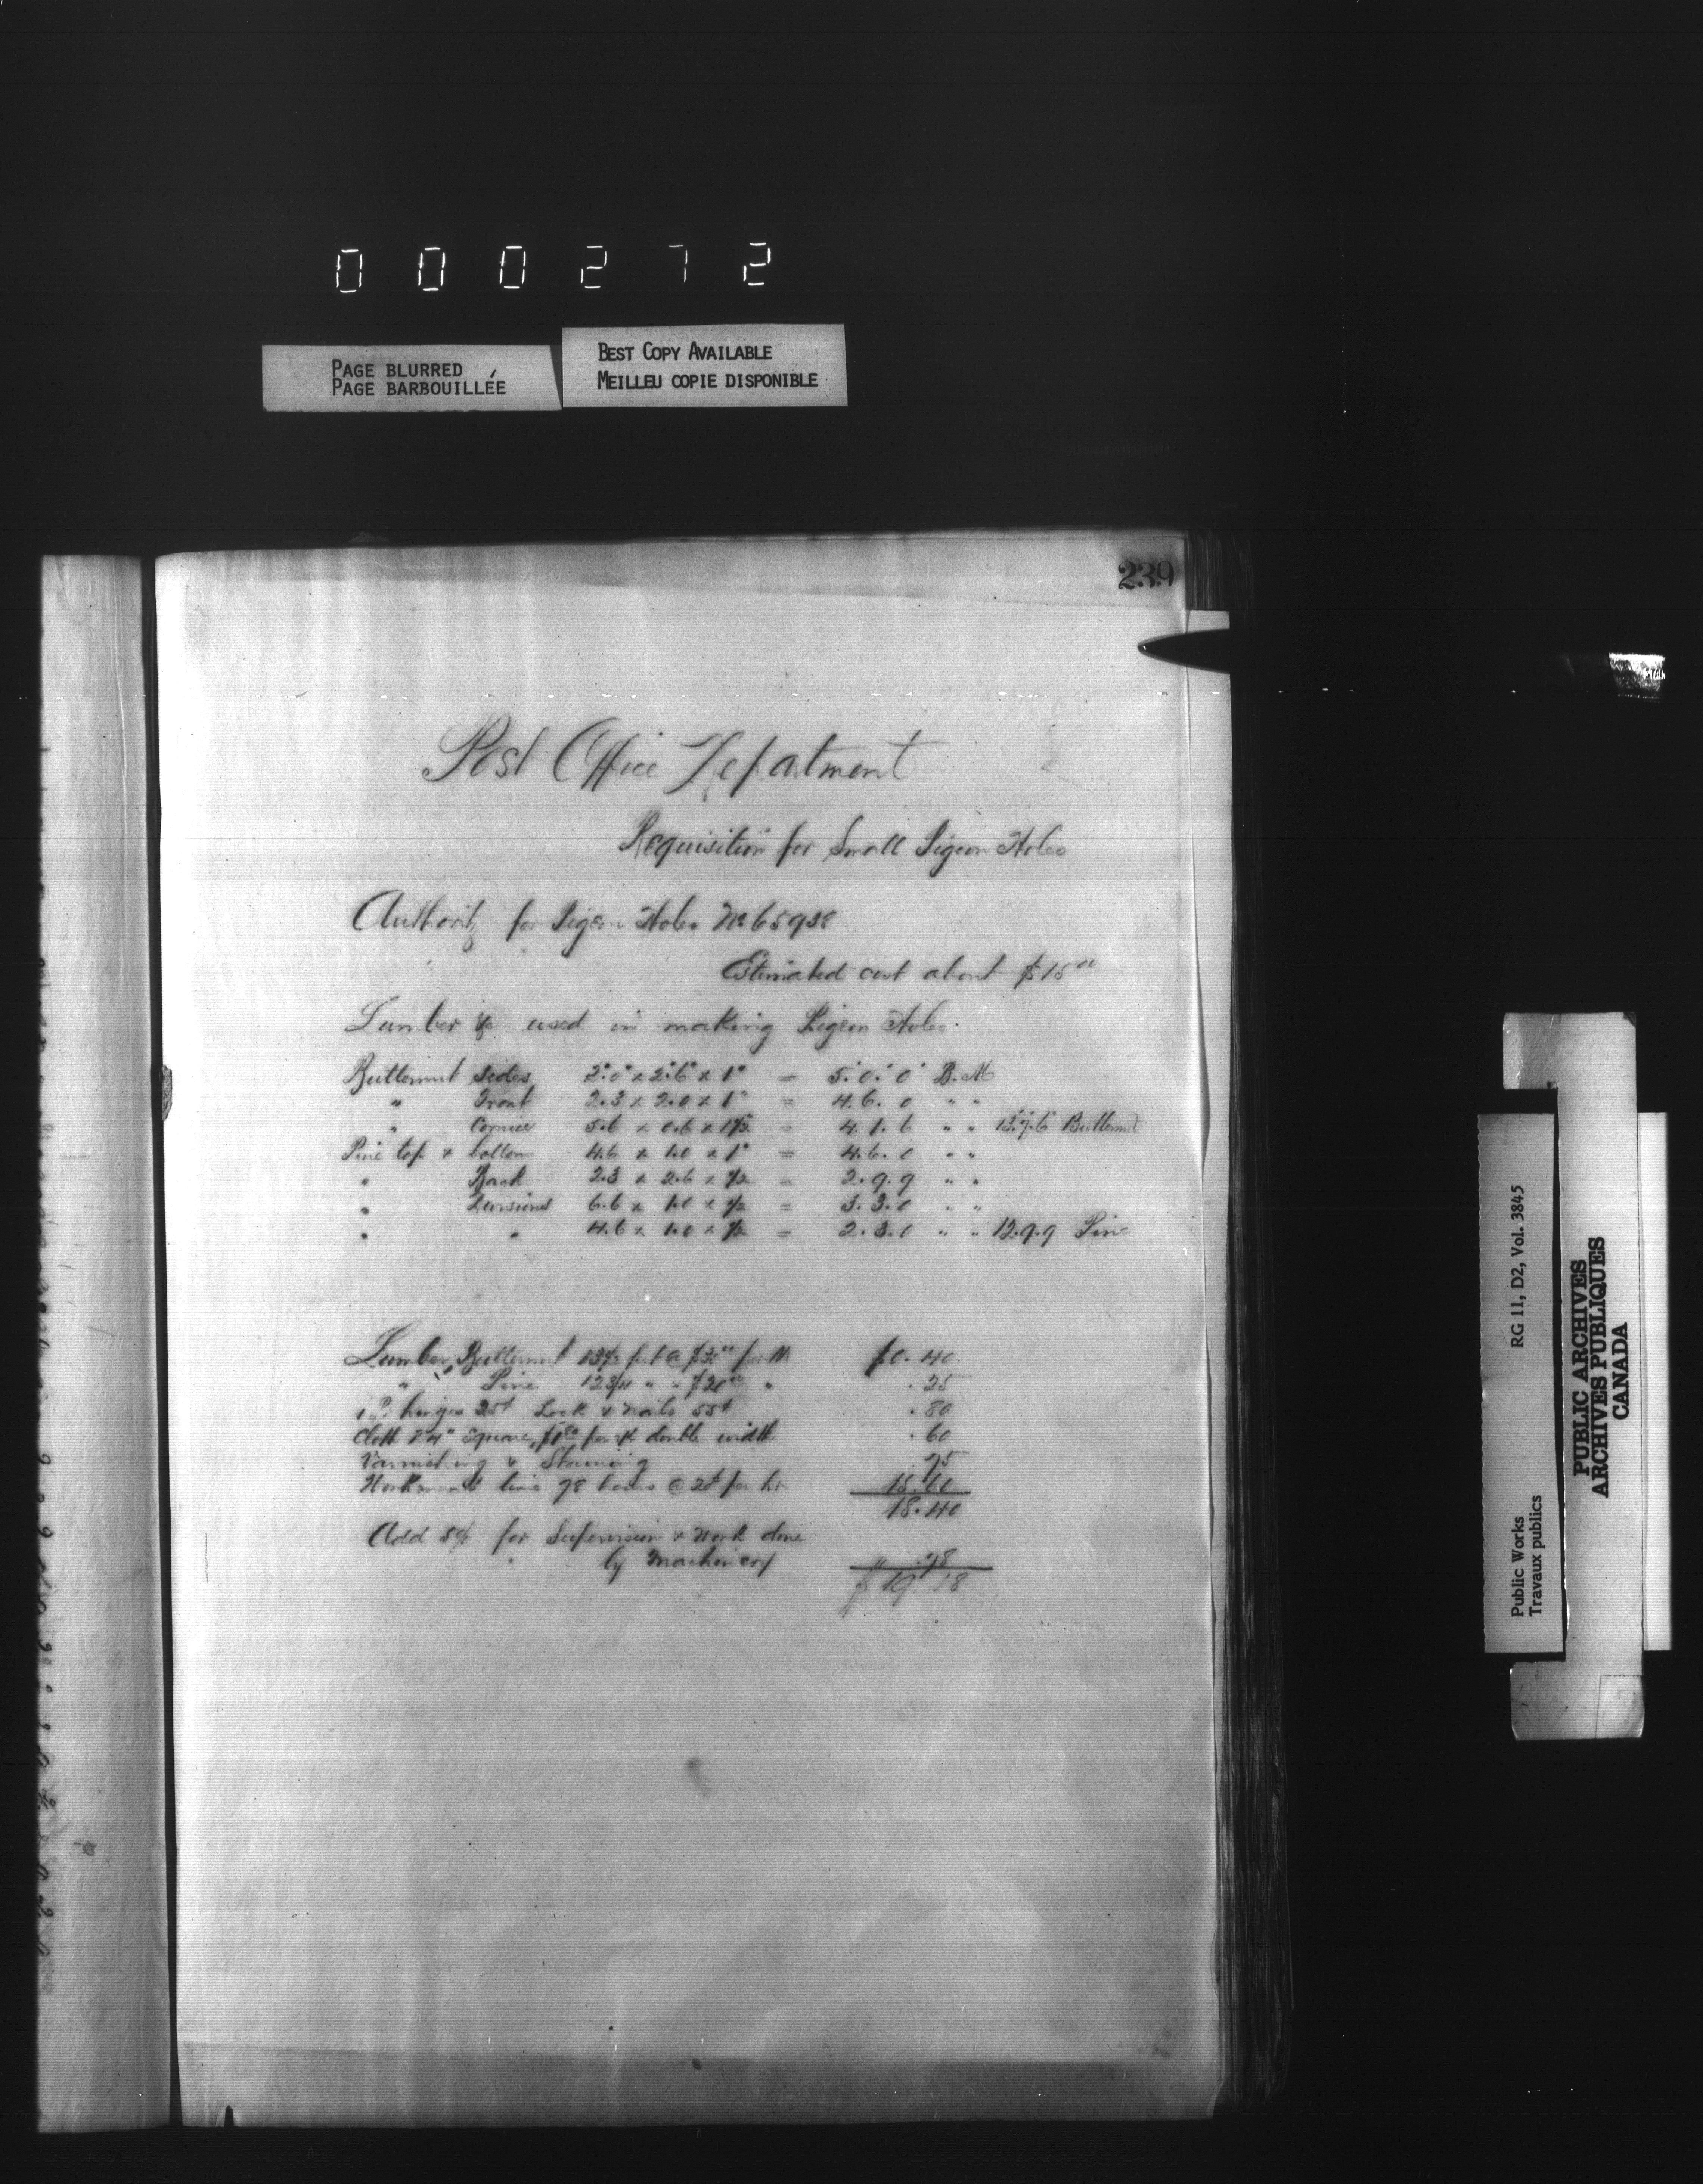 000272
PAGE BLURRED
PAGE BARBOUILLÉE
BEST COPY AVAILABLE
MEILLEU COPIE DISPONIBLE
239
Post Office Department
Requisition for Small Pigeon Holes
Authority for Pigeon Holes No 65938
Estimated cost about $15 00
Lumber &c used in making Pigeon Holes.
Butternut Sides 2'.0" x 2'.6" x 1" = 5'.0".0' B.M
" Front 2.3 x 2.0 x 1" = 4.6.0 " "
" Cornice 5.6 x 0.6 x 1½ = 4.1.6 " " 13'.7.6" Butternut
Pine top & bottom 4.6 x 1.0 x 1" = 4.6.0 " "
" Back 2.3 x 2.6 x ½ = 2.9.9 " "
" Divisions 6.6 x 1.0 x ½ = 3.3.0 " "
" " 4.6 x 1.0 x ½ = 2.3.0 " " 12.9.9 Pine
Lumber, Butternut 13½ feet @ $30 00 per M $0.40
" Pine 12 3/4 " " $20 00 " .25
1 Pr hinges 25¢ Lock & nails 55¢ .80
Cloth 2'4" Square, $1 80 per double width .60
Varnishing & Staining .75
Workmans time 78 hours @ 20¢ per hr 15.60
18.40
Add 5% for Supervision & Work done
by Machinery " .78
$19 18
Public Works
Travaux publics
RG 11, D2, Vol. 3845
PUBLIC ARCHIVES
ARCHIVES PUBLIQUES
CANADA